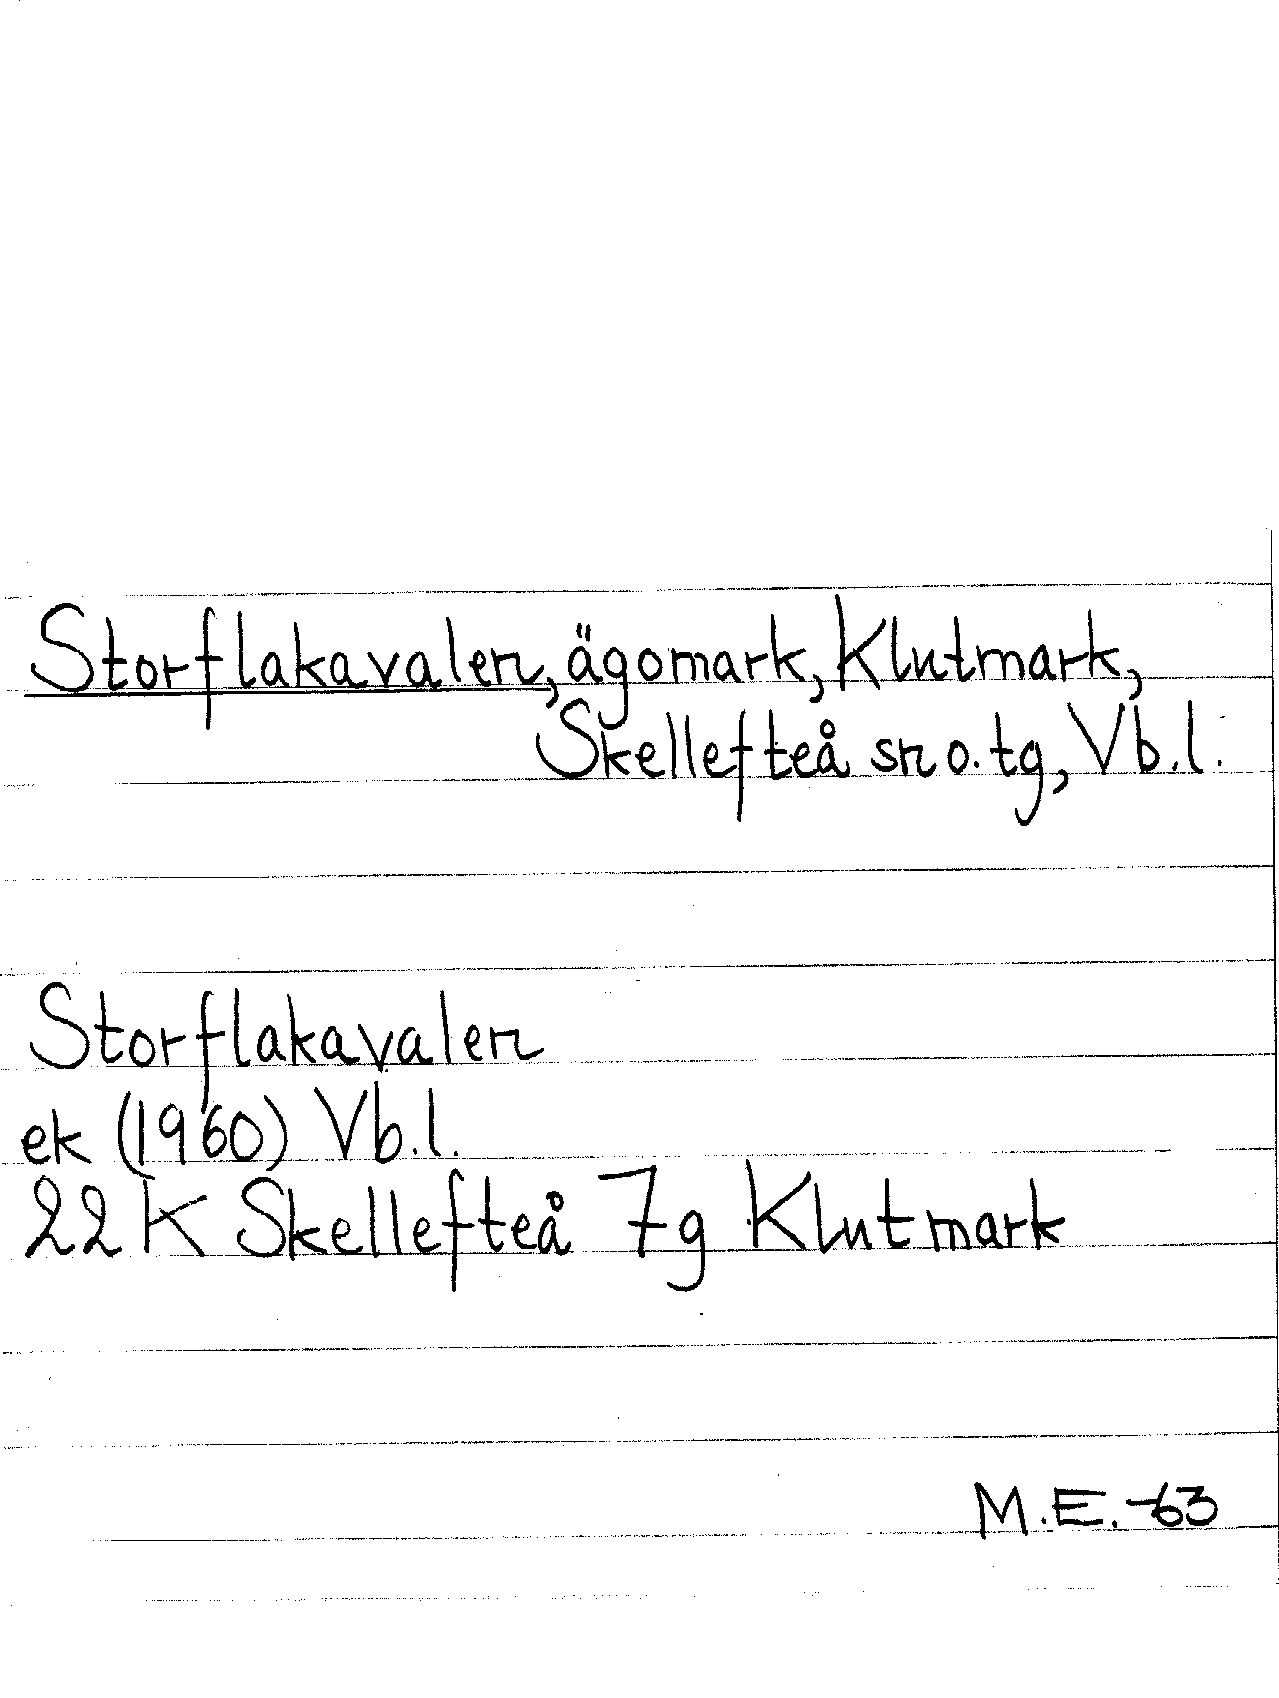 Storflakavalen, ägomark, Klutmark,
Skellefteå sn o. tg, Vb.l.
Storflakavalen
ek (1960) Vb.l.
22 K Skellefteå 7g Klutmark
M.E. -63